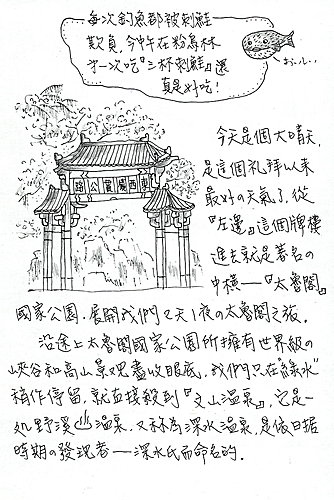 每次釣魚都被刺鮭
欺負,今中午在粉鳥林
第一次吃『三杯刺鮭』還
真是好吃!
おいしい..
東西橫貫公路
今天是個大晴天,
是這個礼拜以來
最好の天氣了,從
『左邊』這個牌樓
進去就是著名の
中橫──『太魯閣』
國家公園.展開我們2天1夜の太魯閣之旅.
沿途上太魯閣國家公園所擁有世界級の
峽谷和高山景观盡收眼底,我們只在"綠水"
稍作停留,就直接殺到『文山溫泉』,它是一
処野溪♨溫泉,又称為深水溫泉,是依日据
時期の發現者──深水氏而命名的.